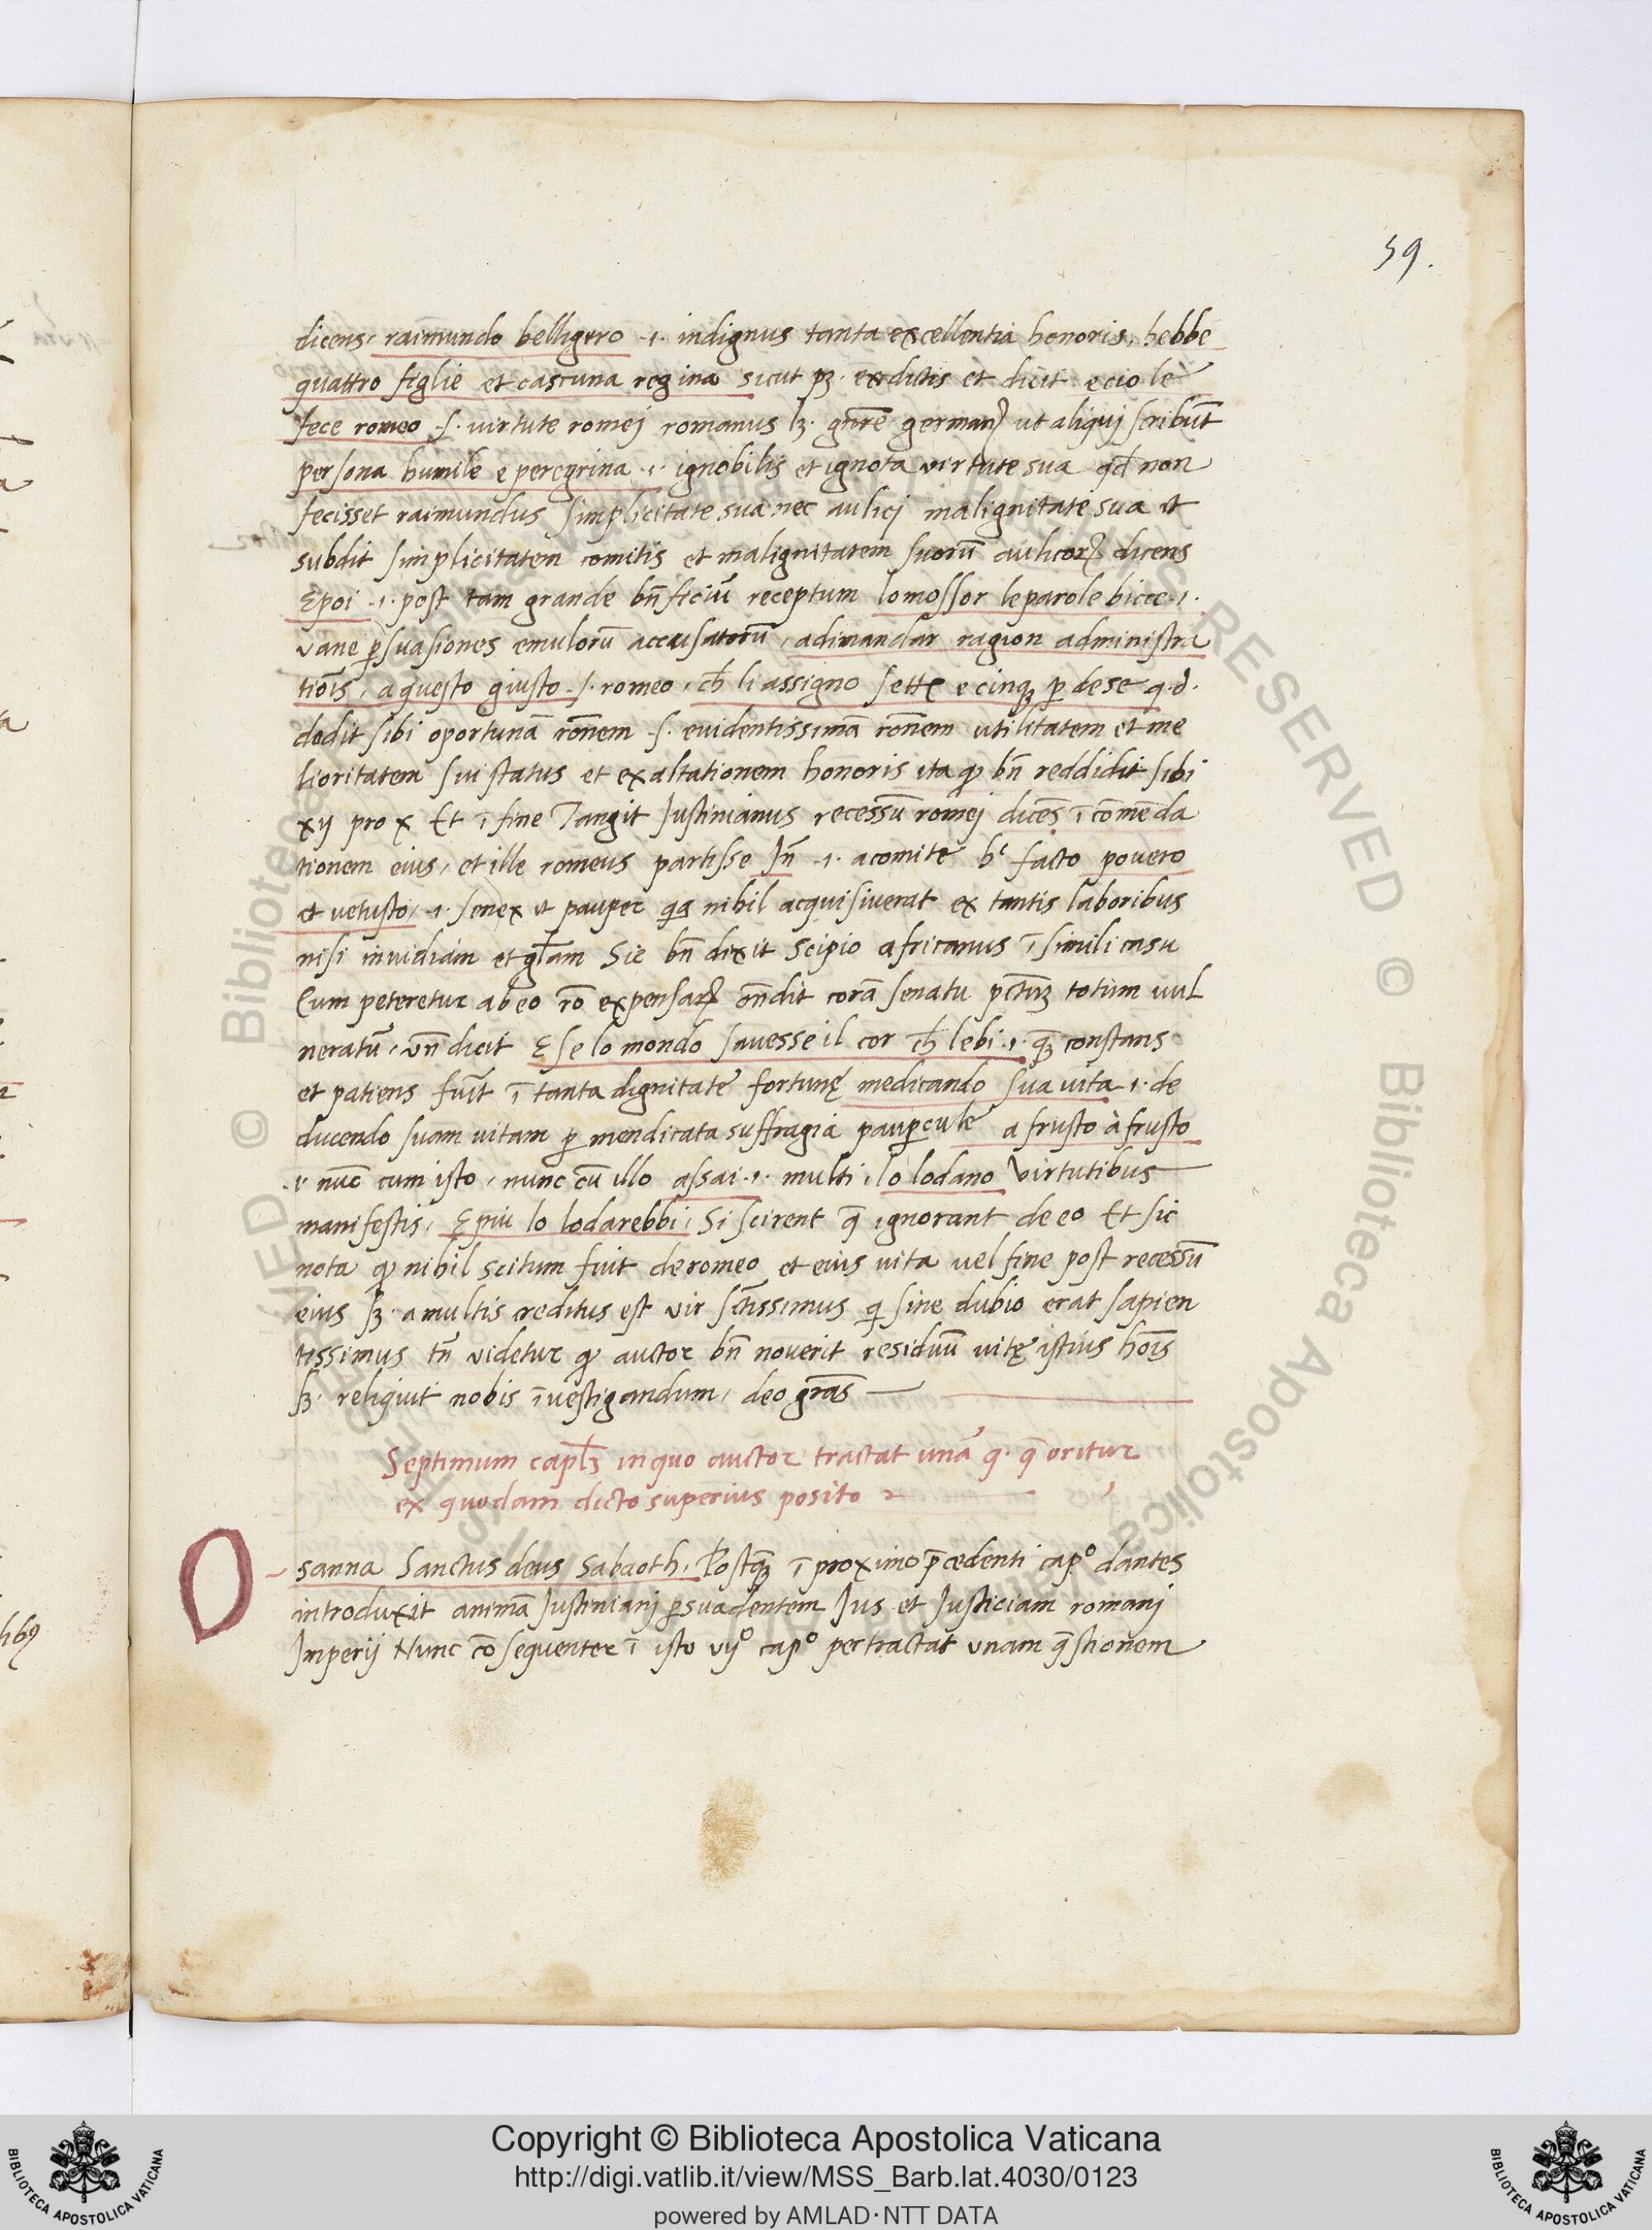 59.
dicens, raimundo belligero .i. indignus tanta excellentia honoris, hebbe
quattro figlie et cascuna regina sicut pȝ. ex dictis et dicit ecio le
fece romeo .s. virtute romej romanus lȝ. gn̄re germanꝝ ut aliquj scribūt
persona humile e peregrina .i. ignobilis et ignota virtute sua qd̄ non
fecisset raimundus simplicitate sua nec aulicj malignitate sua et
subdit simplicitatem comitis et malignitatem suorū aulicorꝝ dicens
Epoi .i. post tam grande bn̄ficiū receptum lomossor leparole bicce .i.
vane ꝑsuasiones emulorū accusatorū, adimandar ragion administra
tiōis, aquesto giusto .s. romeo, ch̄ li assigno sette e cinqȝ ꝑ dese q.d.
dedit sibi oportunā rōnem .s. euidentissimā rōnem utilitatem et me
lioritatem sui status et exaltationem honoris ita ꝙ bn̄ reddidit sibi
xij pro x Et ī fine Tangit Justinianus recessū romej dicēs ī cōmēda
tionem eius, et ille romeus partisse Jn̄ .i. acomite hᶜ facto povero
et vetusto, .i. senex et pauper qa nihil acquisiverat ex tantis laboribus
nisi inuidiam et gl̄am Sic bn̄ dixit Scipio africanus ī simili casu
Cum peteretur ab eo rō expensarꝝ on̄dit corā senatu pctuȝ totum uul
neratū, vn̄ dicit E se lo mondo sauesse il cor ch̄ lebi .i. qȝ constans
et patiens fuit ī tanta dignitate fortunę medicando sua uita .i. de
ducendo suam uitam ꝑ mendicata suffragia pauꝑcule a frusto à frusto
.i. nūc cum isto, nunc cū illo assai .i. multi, lo lodano virtutibus
manifestis, E piu lo lodarebbi, Si scirent q̄ ignorant de eo Et sic
nota ꝙ nihil scitum fuit de romeo et eius uita uel fine post recessū
eius sȝ. a multis creditus est vir sc̄tissimus q̄ sine dubio erat sapien
tissimus tn̄ videtur ꝙ auctor bn̄ noverit residuū uitę istius hōis
sȝ. reliquit nobis īuestigandum, deo grās
Septimum capl̄ȝ in quo auctor tractat unā q. q̄ oritur
ex quodam dicto superius posito
Osanna Sanctus deus Sabaoth, Postqȝ ī proximo p̄cedenti cap° dantes
introduxit animā Justinianj ꝑsuadentem Jus et Justiciam romanj
Jmperij Nunc cōsequenter ī isto vij° cap° pertractat unam q̄stionem
© Biblioteca Apostolica Vaticana
Copyright © Biblioteca Apostolica Vaticana
http://digi.vatlib.it/view/MSS_Barb.lat.4030/0123
powered by AMLAD·NTT DATA
BIBLIOTECA APOSTOLICA VATICANA
BIBLIOTECA APOSTOLICA VATICANA